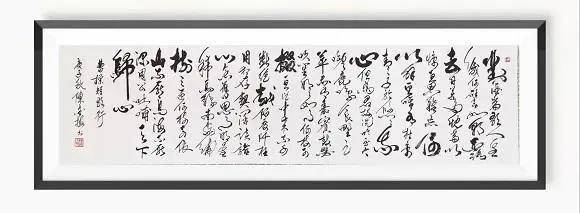 對酒當歌人生
幾何譬如朝露
去日苦多慨當以
慷憂思難忘何
以解憂唯有杜康
青青子衿悠悠我
心但為君故沉吟至今
呦呦鹿鳴食野之
苹我有嘉賓鼓瑟
吹笙明明如月何時可
掇憂從中來不可
斷絕越陌度阡枉
用相存契闊談讌
心念舊恩月明星
稀烏鵲南飛繞
樹三匝何枝可依
山不厭高海不厭
深周公吐哺天下
歸心
曹操短歌行